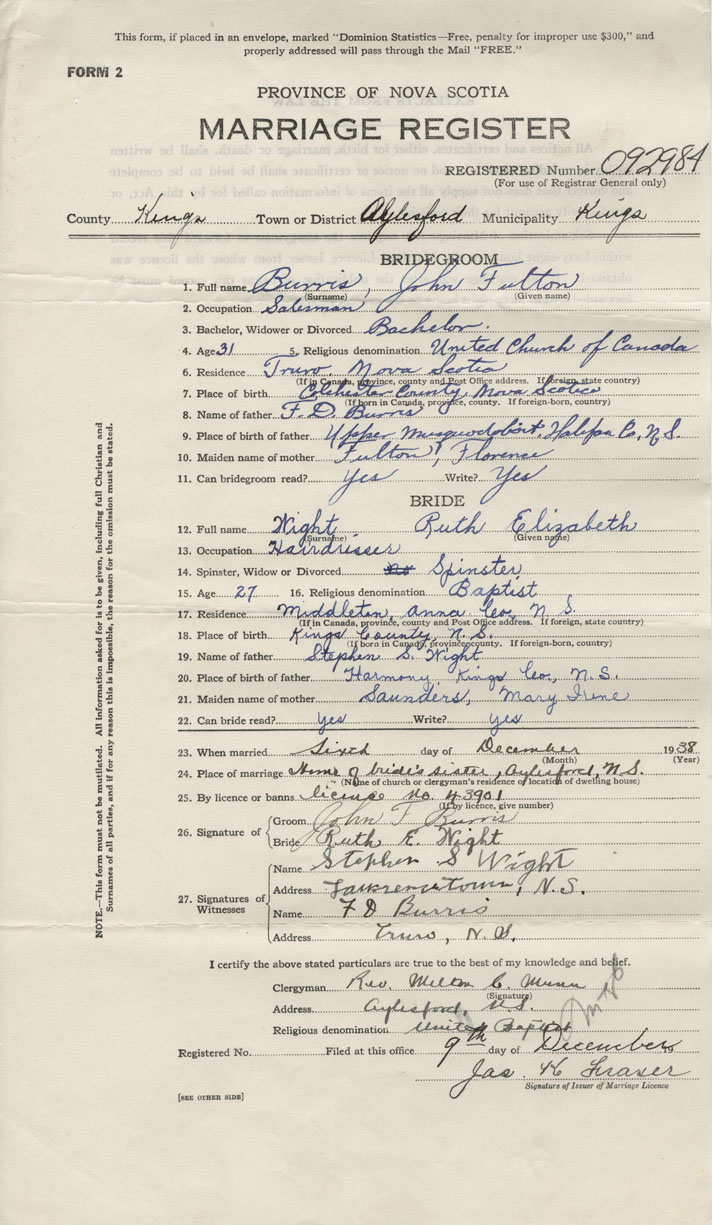 This form, if placed in an envelope, marked "Dominion Statistics—Free, penalty for improper use $300," and
properly addressed will pass through the Mail "FREE."
FORM 2
PROVINCE OF NOVA SCOTIA
MARRIAGE REGISTER
REGISTERED Number 092984
(For use of Registrar General only)
County Kings Town or District Aylesford Municipality Kings
BRIDEGROOM
1. Full name Burris, John Fulton
(Surname) (Given name)
2. Occupation Salesman
3. Bachelor, Widower or Divorced Bachelor.
4. Age 31 5. Religious denomination United Church of Canada
6. Residence Truro, Nova Scotia
(If in Canada, province, county and Post Office address. If foreign, state country)
7. Place of birth Colchester County, Nova Scotia
(If born in Canada, province, county. If foreign-born, country)
8. Name of father F. D. Burris
9. Place of birth of father Upper Musquodoboit, Halifax Co, N.S.
10. Maiden name of mother Fulton, Florence
11. Can bridegroom read? Yes Write? Yes
BRIDE
12. Full name Wight Ruth Elizabeth
(Surname) (Given name)
13. Occupation Hairdresser
14. Spinster, Widow or Divorced Spinster
15. Age 27 16. Religious denomination Baptist
17. Residence Middleton, Anna Co., N S.
(If in Canada, province, county and Post Office address. If foreign, state country)
18. Place of birth Kings County, N.S.
(If born in Canada, province county. If foreign-born, country)
19. Name of father Stephen S. Wight
20. Place of birth of father Harmony, Kings Co., N.S.
21. Maiden name of mother Saunders, Mary Irene
22. Can bride read? Yes Write? Yes
23. When married Sixth day of December 1938
(Month) (Year)
24. Place of marriage Home of bride's sister, Aylesford, N.S.
(Name of church or clergyman's residence or location of dwelling house)
25. By licence or banns license No. 43901
(If by licence, give number)
26. Signature of Groom John F Burris
Bride Ruth E. Wight
27. Signatures of Witnesses Name Stephen S Wight
Address Lawrencetown, N.S.
Name F D Burris
Address Truro, N.S.
I certify the above stated particulars are true to the best of my knowledge and belief.
Clergyman Rev. Milton C. Munn
(Signature)
Address Aylesford, N.S.
Religious denomination United Baptist
Registered No. Filed at this office 9th day of December 19
Jas. K Fraser
Signature of Issuer of Marriage Licence
[SEE OTHER SIDE]
NOTE.—This form must not be mutilated. All information asked for is to be given, including full Christian and
Surnames of all parties, and if for any reason this is impossible, the reason for the omission must be stated.